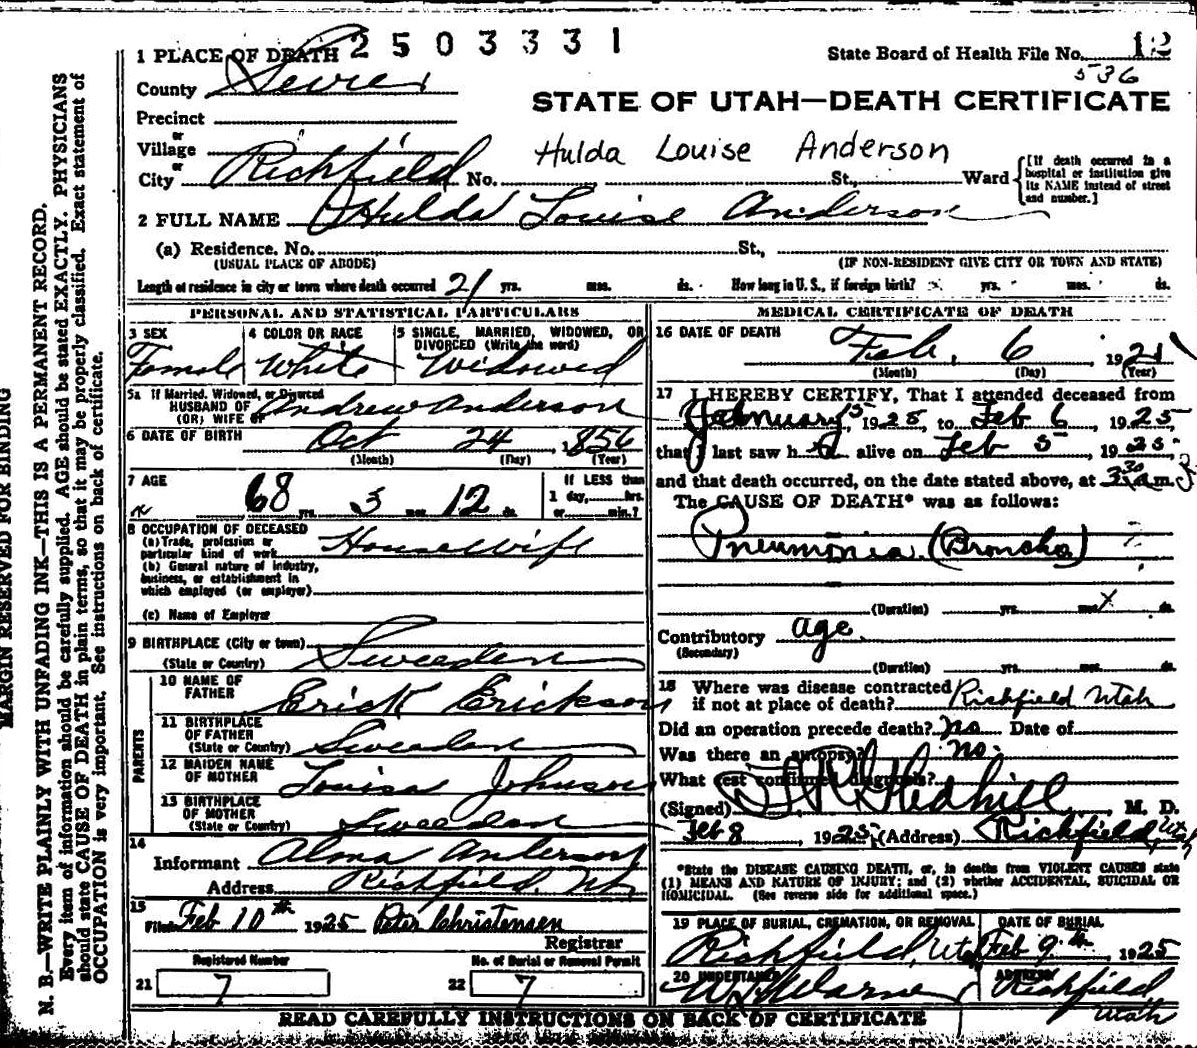 1 PLACE OF DEATH 2503331 State Board of Health File No. 12
536
County Sevier
STATE OF UTAH—DEATH CERTIFICATE
Precinct
or
Village
Hulda Louise Anderson
or
City Richfield No. St., Ward
[If death occurred in a hospital or institution give its NAME instead of street and number.]
2 FULL NAME Hulda Louise Anderson
(a) Residence. No. St.,
(USUAL PLACE OF ABODE) (IF NON-RESIDENT GIVE CITY OR TOWN AND STATE)
Length of residence in city or town where death occurred 21 yrs. mos. ds. How long in U. S., if foreign birth? yrs. mos. ds.
PERSONAL AND STATISTICAL PARTICULARS
3 SEX 4 COLOR OR RACE 5 SINGLE, MARRIED, WIDOWED, OR
DIVORCED (Write the word)
Female White Widowed
5a If Married, Widowed, or Divorced
HUSBAND OF
(OR) WIFE OF Andrew Anderson
6 DATE OF BIRTH Oct 24 1856
(Month) (Day) (Year)
7 AGE If LESS than
68 yrs. 3 mos. 12 ds. 1 day, hrs.
or min.?
8 OCCUPATION OF DECEASED
(a) Trade, profession or
particular kind of work Housewife
(b) General nature of industry,
business, or establishment in
which employed (or employer)
(c) Name of Employer
9 BIRTHPLACE (City or town)
(State or Country) Sweeden
PARENTS
10 NAME OF
FATHER Erick Erickson
11 BIRTHPLACE
OF FATHER
(State or Country) Sweeden
12 MAIDEN NAME
OF MOTHER Louisa Johnson
13 BIRTHPLACE
OF MOTHER
(State or Country) Sweeden
14
Informant Alma Anderson
Address Richfield, Ut,
15
Filed Feb 10th 1925 Peter Christensen
Registrar
Registered Number No. of Burial or Removal Permit
21 7 22 7
MEDICAL CERTIFICATE OF DEATH
16 DATE OF DEATH
Feb. 6 1921
(Month) (Day) (Year)
17 I HEREBY CERTIFY, That I attended deceased from
1925, to Feb 6 1925
that I last saw h alive on Feb 5 1925
and that death occurred, on the date stated above, at 3 30 a m.
The CAUSE OF DEATH* was as follows:
Pneumonia (Broncho)
(Duration) yrs. mos. ds.
Contributory age
(Secondary)
(Duration) yrs. mos. ds.
18 Where was disease contracted
if not at place of death? Richfield Utah
Did an operation precede death? no Date of
Was there an autopsy? no.
What test confirmed diagnosis?
(Signed) M. D.
Feb 8 1925, (Address) Richfield, Utah
*State the DISEASE CAUSING DEATH, or, in deaths from VIOLENT CAUSES state
(1) MEANS AND NATURE OF INJURY; and (2) whether ACCIDENTAL, SUICIDAL OR
HOMICIDAL. (See reverse side for additional space.)
19 PLACE OF BURIAL, CREMATION, OR REMOVAL DATE OF BURIAL
Richfield, Utah Feb 9th, 1925
20 UNDERTAKER ADDRESS
Richfield
Utah
READ CAREFULLY INSTRUCTIONS ON BACK OF CERTIFICATE
MARGIN RESERVED FOR BINDING
N. B.—WRITE PLAINLY WITH UNFADING INK—THIS IS A PERMANENT RECORD.
Every item of information should be carefully supplied. AGE should be stated EXACTLY. PHYSICIANS
should state CAUSE OF DEATH in plain terms, so that it may be properly classified. Exact statement of
OCCUPATION is very important. See instructions on back of certificate.